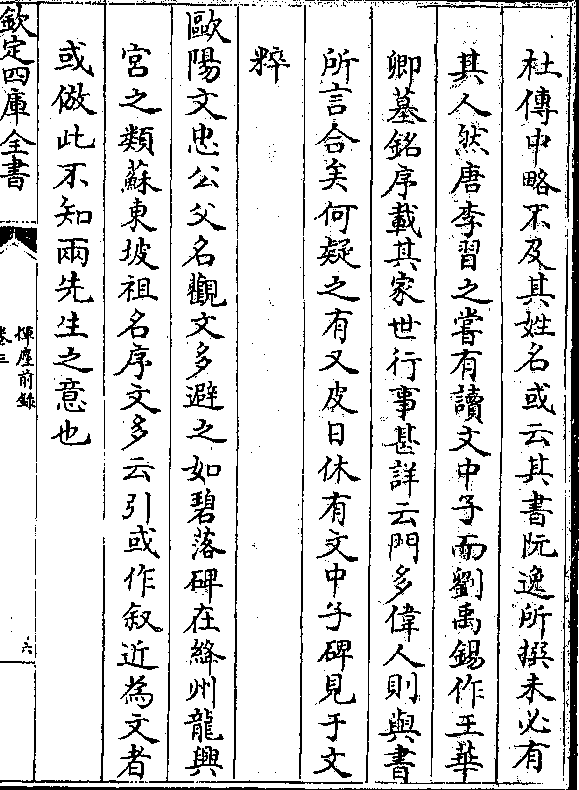 杜傳中略不及其姓名或云其書阮逸所撰未必有
其人然唐李習之嘗有讀文中子而劉禹錫作王華
卿墓銘序載其家世行事甚詳云門多偉人則與書
所言合矣何疑之有又皮日休有文中子碑見于文
粹
歐陽文忠公父名觀文多避之如碧落碑在絳州龍興
宮之類蘇東坡祖名序文多云引或作叙近為文者
或倣此不知兩先生之意也
欽定四庫全書
揮麈前錄
卷三
六